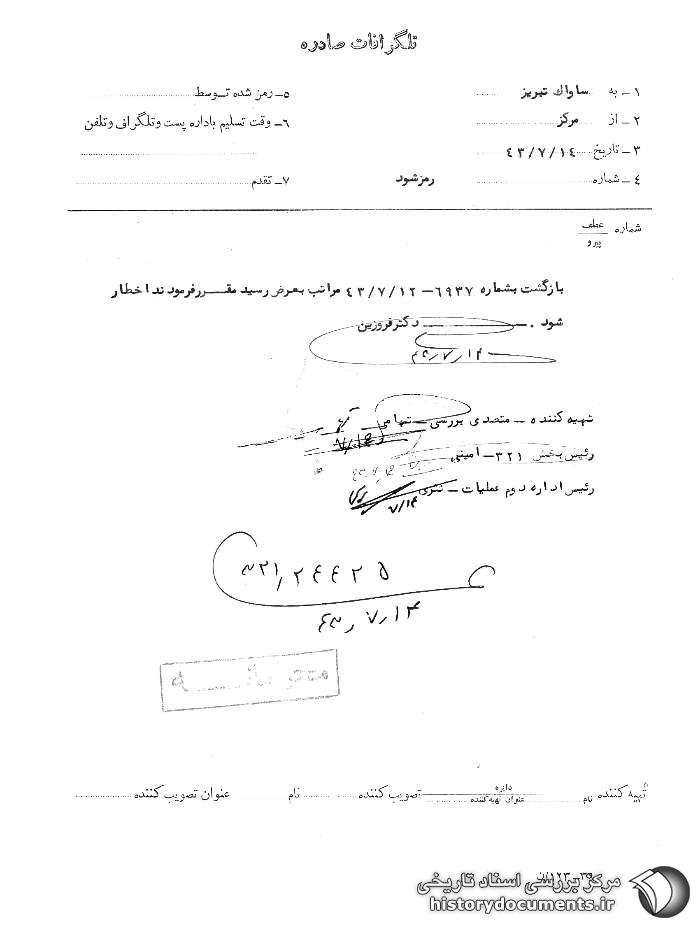 تلگرافات صادره
۱ـ به ساواک تبریز
۲ـ از مرکز
۳ـ تاریخ ۴۳/۷/۱۴
۴ـ شماره رمز شود
۵ـ رمز شده توسط
۶ـ وقت تسلیم باداره پست و تلگراف و تلفن
۷ـ تقدم
شماره عطف
پیرو
بازگشت بشماره ۶۹۳۷ـ ۴۳/۷/۱۲ مراتب بعرض رسید مقرر فرمودند اخطار
شود . ـ دکتر فروزین
۴۳٫۷٫۱۴
تهیه کننده ـ متصدی بررسی ـ تهامی
۷/۱۴
رئیس بخش ۳۲۱ـ امینی
رئیس اداره دوم عملیات ـ
۷/۱۴
۳۲۱٫۲۴۴۲۵
۴۳٫۷٫۱۴
محرمانه
تهیه کننده نام دایره
عنوان تهیه کننده تصویب کننده نام عنوان تصویب کننده
مرکز بررسی اسناد تاریخی
historydocuments.ir